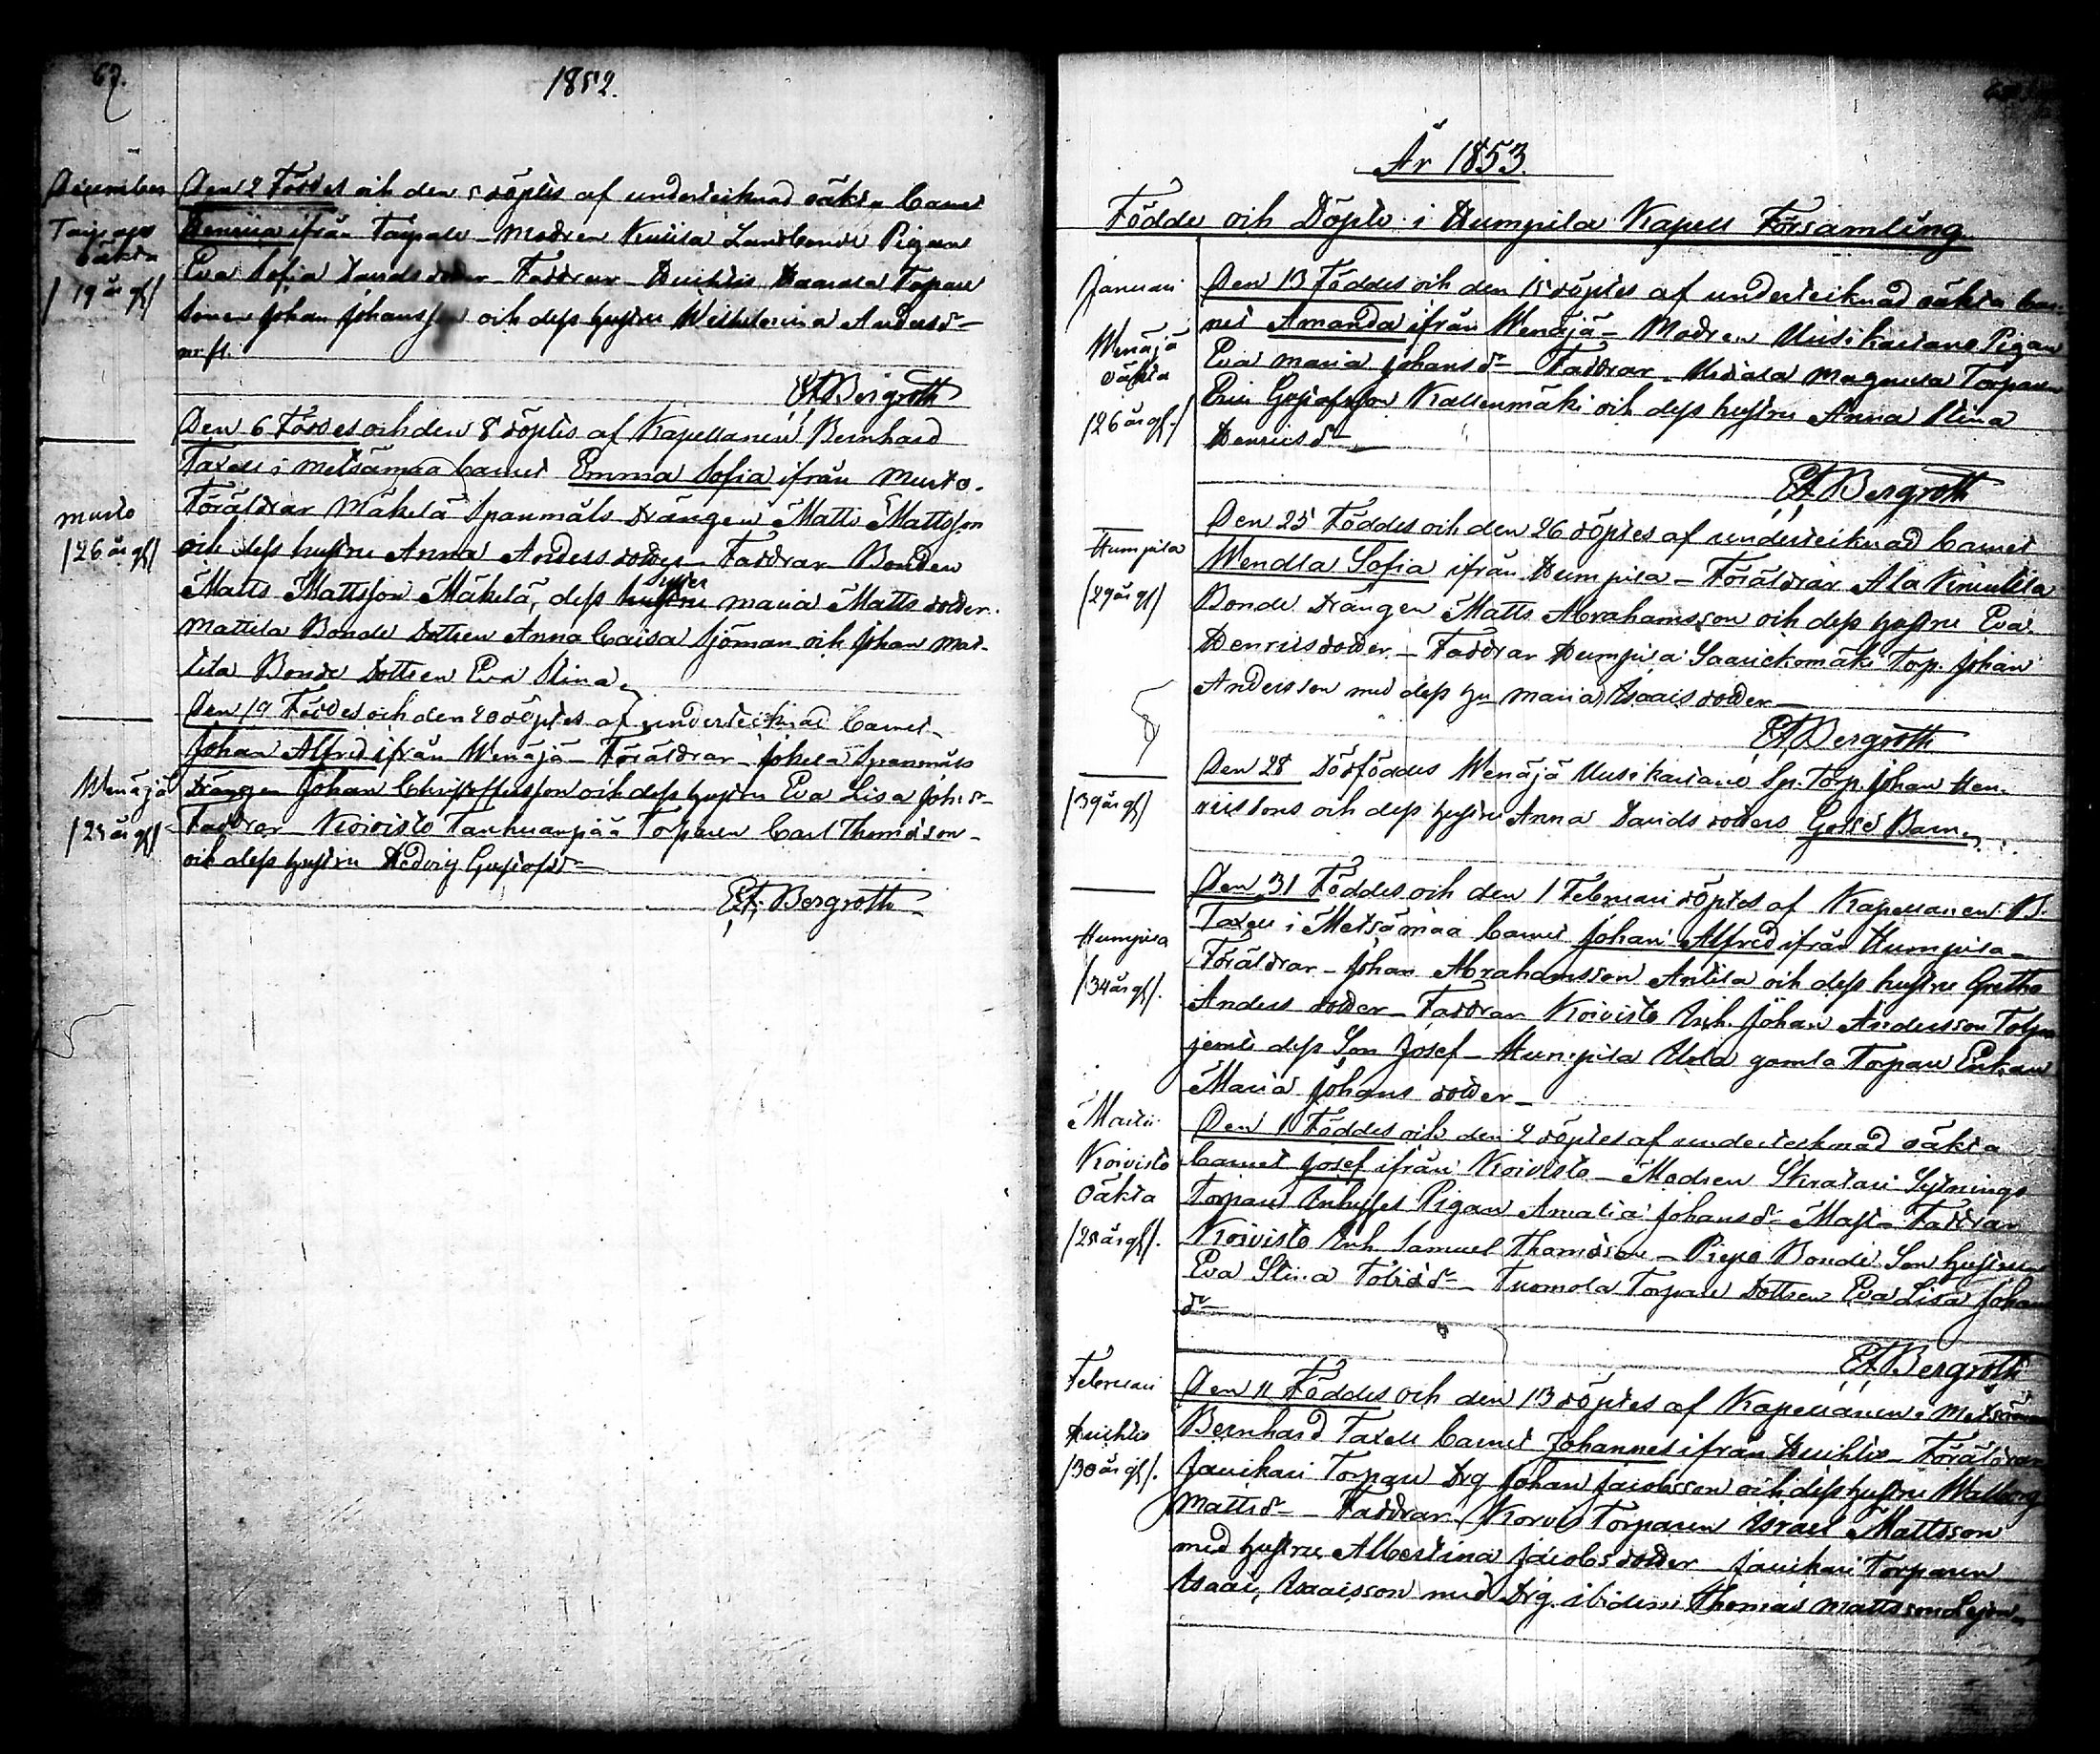 67.
1852.
December
Taipale
oäkta
/19 år gl/
Den 2 Föddes och den 5 döptes af undertecknad oäkta barnet
Henrica ifrån Taipale – Modren Kuisla Landbonde Pigan
Eva Sofia Davidsdotter – Faddrar – Huhtis Torpare
Sonen Johan Johansson och dess hustru Wilhelmina Andersdr

EA Bergroth
Murto
/26 år gl/
Den 6 Föddes och den 8 döptes af Kapellanen Bernhard
Taxell i Metsämaa barnet Emma Sofia ifrån Murto.
Föräldrar Mäkelä Spanmåls Drängen Matts Mattsson
och dess hustru Anna Andersdotter – Faddrar Bonden
Matts Mattsson Mäkelä, dess syster Maria Matts dotter.
Mattila Bonde Dottren Anna Caisa Sjöman och Johan Mat-
tila Bonde Dottren Eva Stina.
Wenäjä
/25 år gl/
Den 19 Föddes och den 20 döptes af undertecknad barnet
Johan Alfred ifrån Wenäjä – Föräldrar – Jokela Spanmåls
Drängen Johan Christoffersson och dess hustru Eva Lisa Joh:dr
Faddrar – Koivisto Tanhuanpää Torparen Carl Thomasson –
och dess hustru Hedvig Gustafsdr
EA Bergroth
År 1853.
Födde och Döpte i Humpila Kapell Församling
Januari
Wenäjä
oäkta
/26 år gl./
Den 13 Föddes och den 15 döptes af undertecknad oäkta bar-
net Amanda ifrån Wenäjä – Modren Uusikartano Pigan
Eva Maria Johansdr – Faddrar – Torparen
Eric Gustafsson Kallenmäki och dess hustru Anna Stina
Henricsdr
EA Bergroth
Humpila
/29 år gl/
Den 25 Föddes och den 26 döptes af undertecknad barnet
Wendla Sofia ifrån Humpila – Föräldrar Ala Knuutila
Bonde Drängen Matts Abrahamsson och dess hustru Eva
Henricsdotter – Faddrar Humpila Saarichomäki Torp. Johan
Andersson med dess hu Maria Isaacs dotter –
EA Bergroth
/39 år gl/
Den 28 Dödföddes Wenäjä Uusikartano Sp. Torp. Johan Hen-
ricssons och dess hustru Anna Davids dotters Gosse Barn.
Humpila
/34 år gl/.
Den 31 Föddes och den 1 Februari döptes af Kapellanen B.
Taxell i Metsämaa barnet Johan Alfred ifrån Humpila –
Föräldrar – Johan Abrahamsson Antila och dess hustru Gretha
Anders dotter – Faddrar Koivisto Inh. Johan Andersson
jemte dess Son Josef – Humpila Uola gamla Torpare Enkan
Maria Johans dotter –
Martii
Koivisto
oäkta
/25 år gl/.
Den 1 Föddes och den 2 döptes af undertecknad oäkta
barnet Josef ifrån Koivisto – Modren Sytnings
Torpare Inhyses Pigan Amalia Johansdr Faddrar
Koivisto Inh Samuel Thomasson – Piepo Bonde Son hustrun
Eva Stina Tobiasdr – Tuomola Torpare Dottren Eva Lisa Johans
dr
EA Bergroth
Februari
Huhtis
/30 år gl/.
Den 11 Föddes och den 13 döptes af Kapellanen i Metsämaa
Bernhard Taxell barnet Johannes ifrån Huhtis – Föräldrar
Torpare Drg Johan Jacobsson och dess hustru Walborg
Mattsdr – Faddrar Torparen Israel Mattsson
med hustru Albertina Jacobsdotter – Torparen
Isaac Isaacsson med Drg. ibidem Thomas Mattsson